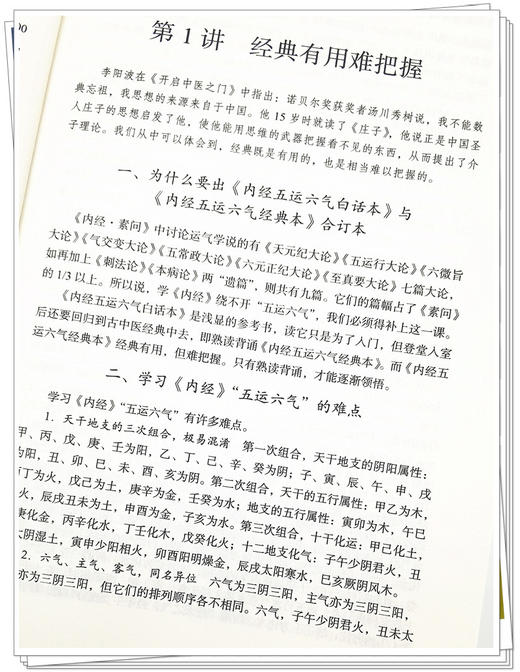 第1讲 经典有用难把握
李阳波在《开启中医之门》中指出：诺贝尔奖获奖者汤川秀树说，我不能数
典忘祖，我思想的来源来自于中国。他15岁时就读了《庄子》，他说正是中国圣
人庄子的思想启发了他，使他能用思维的武器把握看不见的东西，从而提出了介
子理论。我们从中可以体会到，经典既是有用的，也是相当难以把握的。
一、为什么要出《内经五运六气白话本》与
《内经五运六气经典本》合订本
《内经·素问》中讨论运气学说的有《天元纪大论》《五运行大论》《六微旨
大论》《气交变大论》《五常政大论》《六元正纪大论》《至真要大论》七篇大论，
如再加上《刺法论》《本病论》两“遗篇”，则共有九篇。它们的篇幅占了《素问》
的1/3以上。所以说，学《内经》绕不开“五运六气”，我们必须得补上这一课。
《内经五运六气白话本》是浅显的参考书，读它只是为了入门，但登堂入室
后还要回归到古中医经典中去，即熟读背诵《内经五运六气经典本》。而《内经五
运六气经典本》经典有用，但难把握。只有熟读背诵，才能逐渐领悟。
二、学习《内经》“五运六气”的难点
学习《内经》“五运六气”有许多难点。
1. 天干地支的三次组合，极易混淆 第一次组合，天干地支的阴阳属性：
甲、丙、戊、庚、壬为阳，乙、丁、己、辛、癸为阴；子、寅、辰、午、申、戌
为阳，丑、卯、巳、未、酉、亥为阴。第二次组合，天干的五行属性：甲乙为木，
丙丁为火，戊己为土，庚辛为金，壬癸为水；地支的五行属性：寅卯为木，午巳
火，辰戌丑未为土，申酉为金，子亥为水。第三次组合，十干化运：甲己化土，
庚化金，丙辛化水，丁壬化木，戊癸化火；十二地支化气：子午少阴君火，丑
太阴湿土，寅申少阳相火，卯酉阳明燥金，辰戌太阳寒水，巳亥厥阴风木。
2. 六气、主气、客气，同名异位 六气为三阴三阳，主气亦为三阴三阳，
亦为三阴三阳，但它们的排列顺序各不相同。六气，子午少阴君火，丑未太